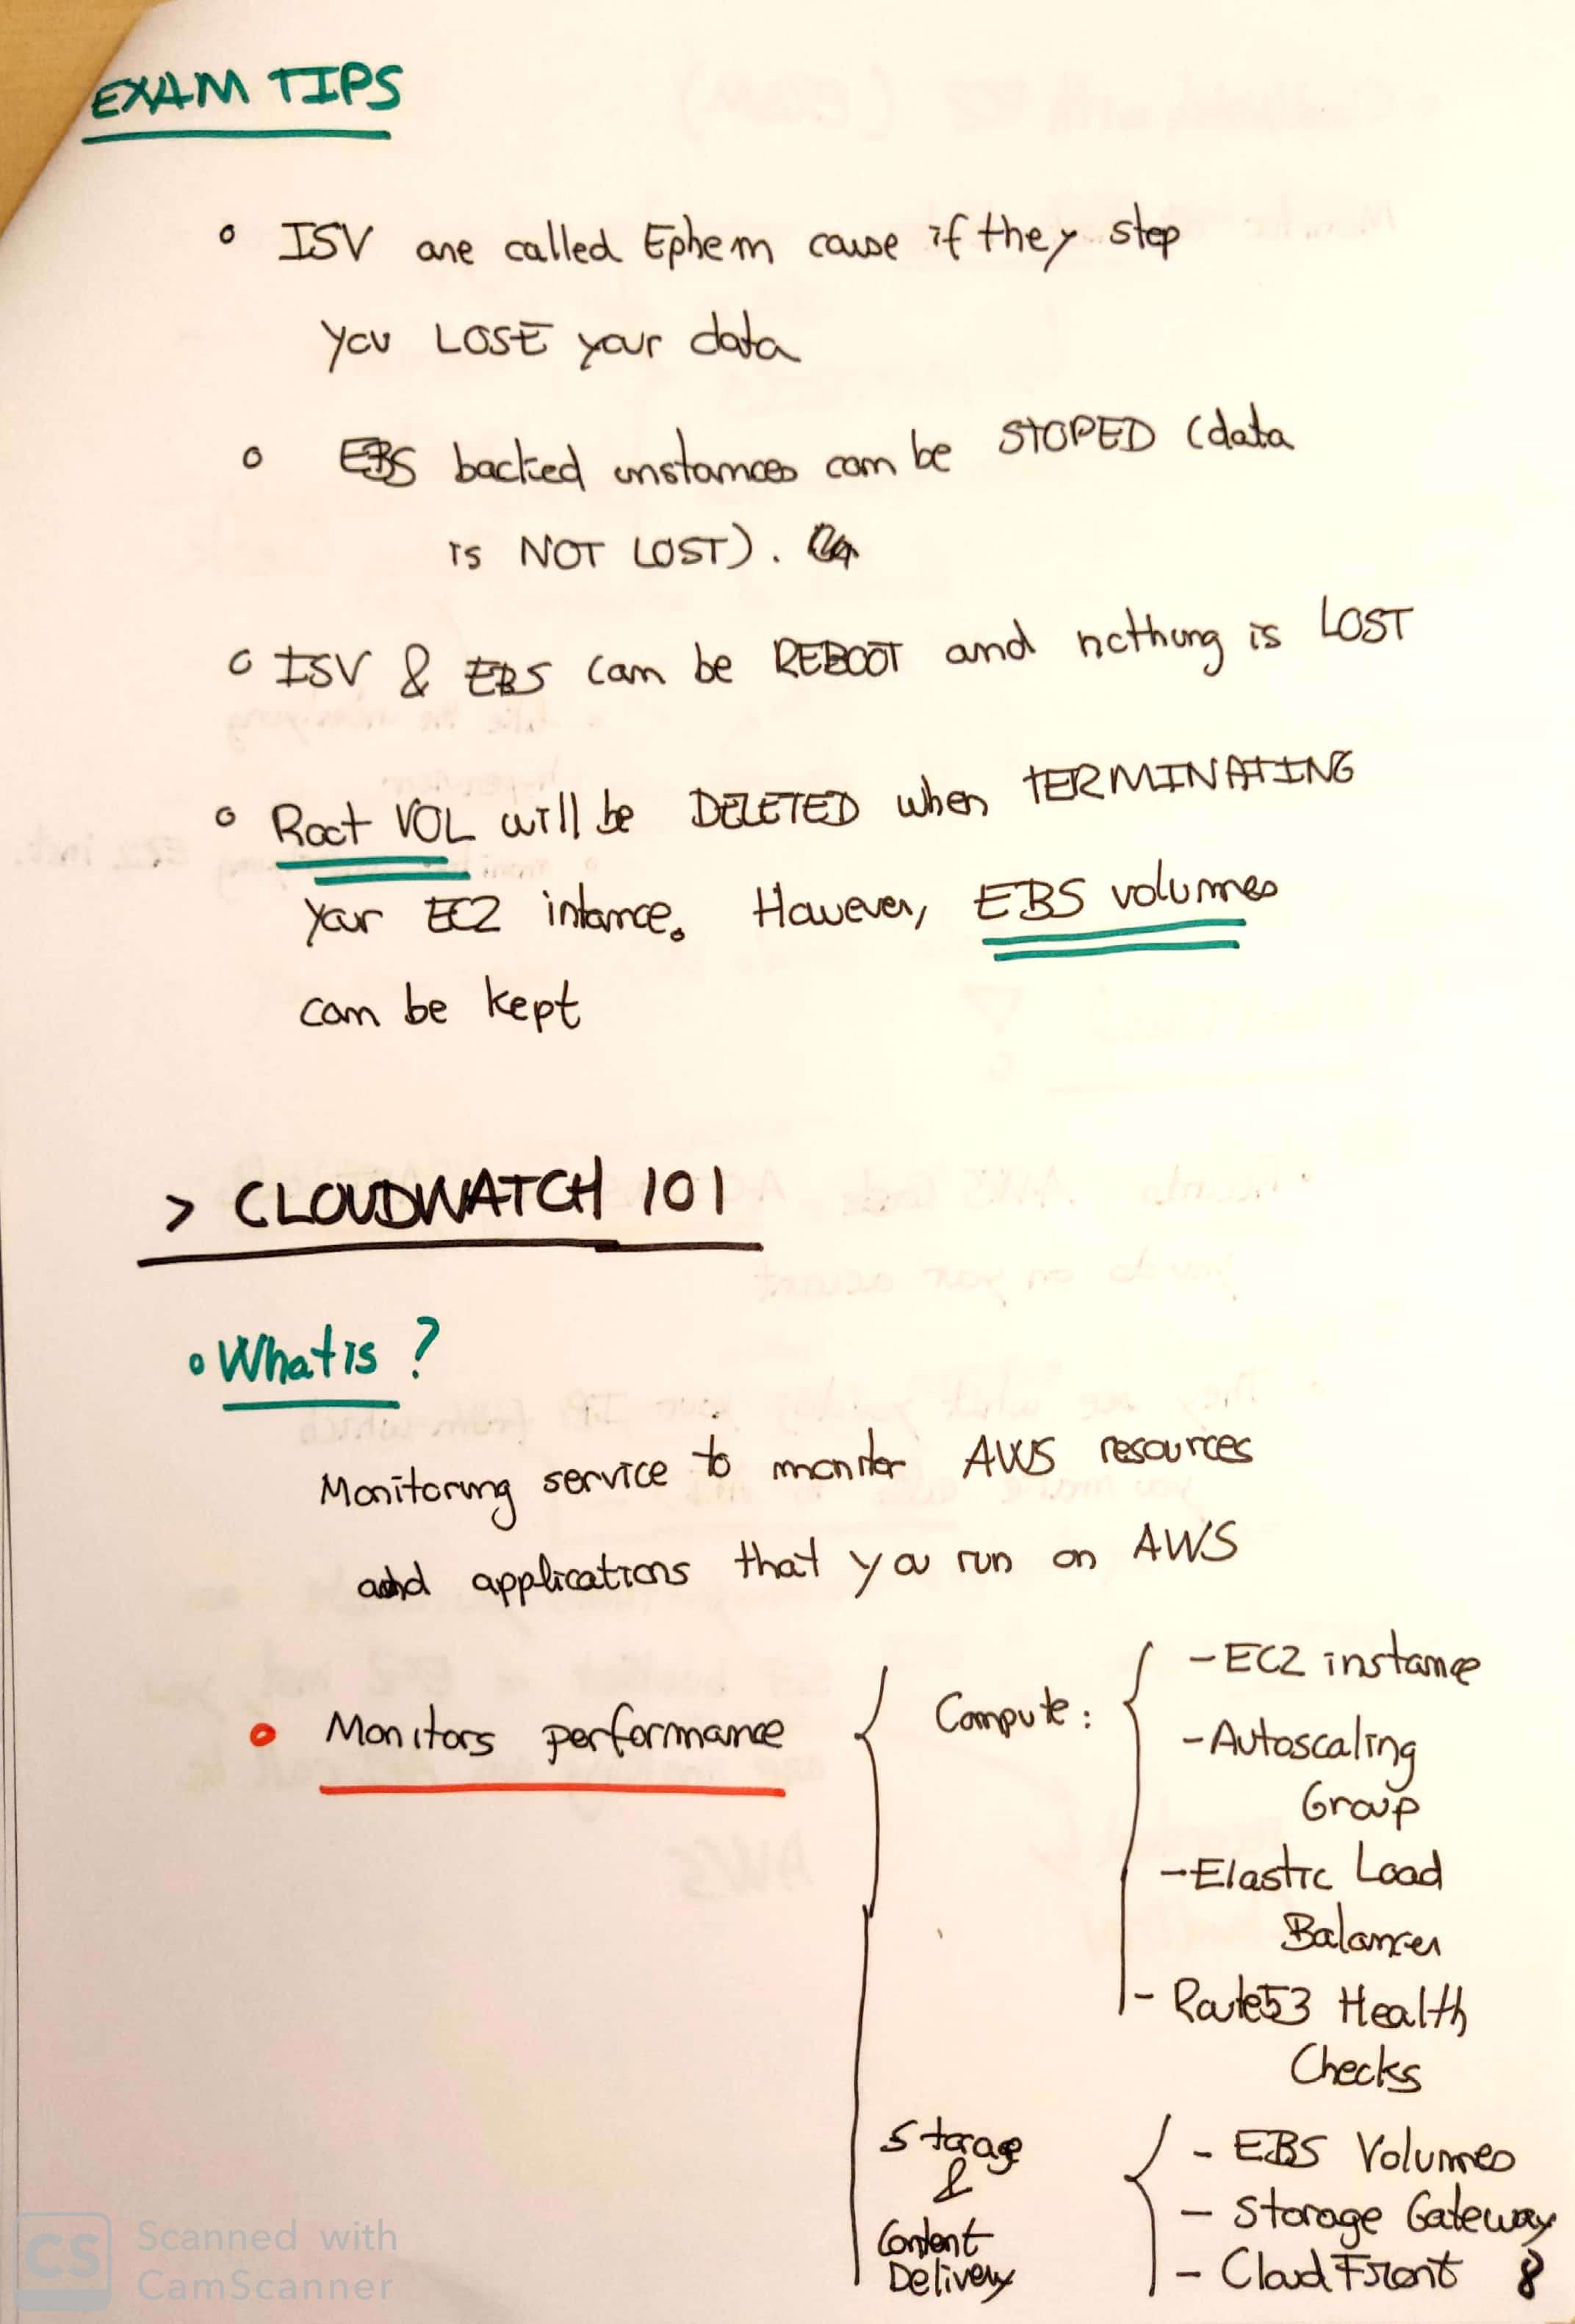 EXAM TIPS
° ISV are called Ephem cause if they stop
you LOSE your data
° EBS backed instances can be STOPED (data
is NOT LOST).
° ISV & EBS can be REBOOT and nothing is LOST
° Root VOL will be DELETED when TERMINATING
your EC2 intance. However, EBS volumes
can be kept
> CLOUDWATCH 101
° What is ?
Monitoring service to monitor AWS resources
and applications that you run on AWS
° Monitors performance
Compute :
- EC2 instance
- Autoscaling
Group
- Elastic Load
Balancer
- Route53 Health
Checks
Storage
&
Content
Delivery
- EBS Volumes
- Storage Gateway
- CloudFront
8
CS Scanned with
CamScanner